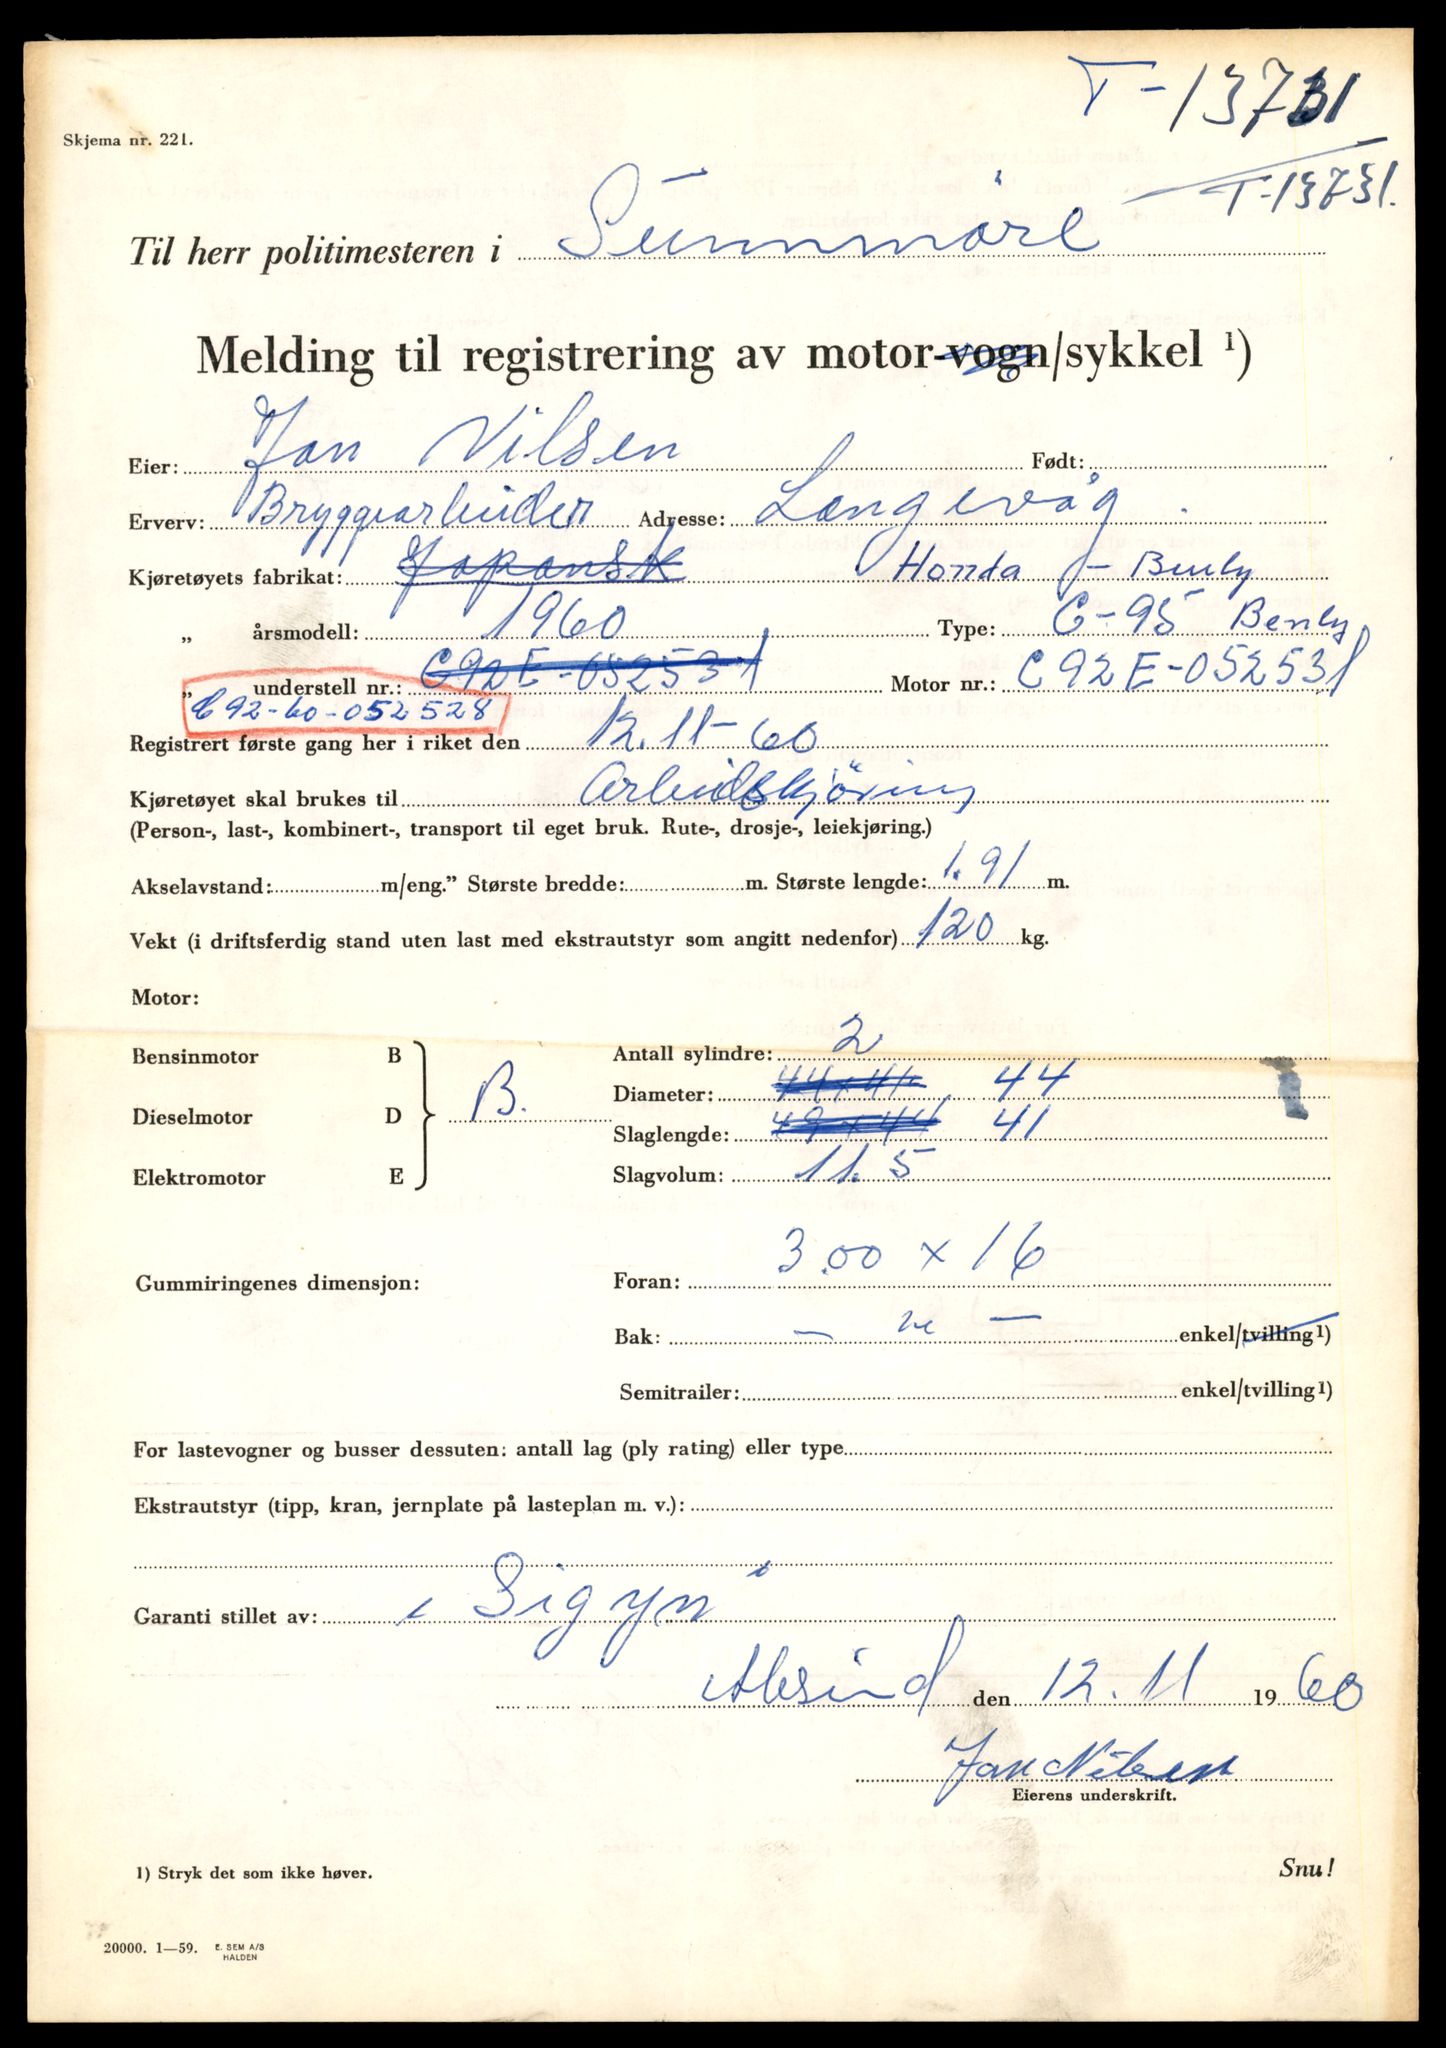 T-13731
Skjema nr. 221.
T-13731.
Til herr politimesteren i Sunnmöre
Melding til registrering av motor-vogn/sykkel 1)
Eier: Jan Nilsen Født:
Erverv: Bryggearbeider Adresse: Langevåg.
Kjøretøyets fabrikat: Japansk Honda - Benly
„ årsmodell: 1960 Type: C-95 Benly
„ understell nr.: C92E-052531 Motor nr.: C92E-052531
C92-60-052528
Registrert første gang her i riket den 12.11-60
Kjøretøyet skal brukes til Arbeidskjöring
(Person-, last-, kombinert-, transport til eget bruk. Rute-, drosje-, leiekjøring.)
Akselavstand: m/eng.” Største bredde: m. Største lengde: 1.91 m.
Vekt (i driftsferdig stand uten last med ekstrautstyr som angitt nedenfor) 120 kg.
Motor:
Bensinmotor B Antall sylindre: 2
Diameter: 44x41 44
Dieselmotor D B. Slaglengde: 49x44 41
Elektromotor E Slagvolum: 11.5
Gummiringenes dimensjon: Foran: 3.00 x 16
Bak: — " — enkel/tvilling 1)
Semitrailer: enkel/tvilling 1)
For lastevogner og busser dessuten: antall lag (ply rating) eller type
Ekstrautstyr (tipp, kran, jernplate på lasteplan m. v.):
Garanti stillet av: „Sigyn"
Alesund den 12.11 1960
Jan Nilsen
Eierens underskrift.
1) Stryk det som ikke høver.
Snu!
20000. 1—59. E. SEM A/S
HALDEN